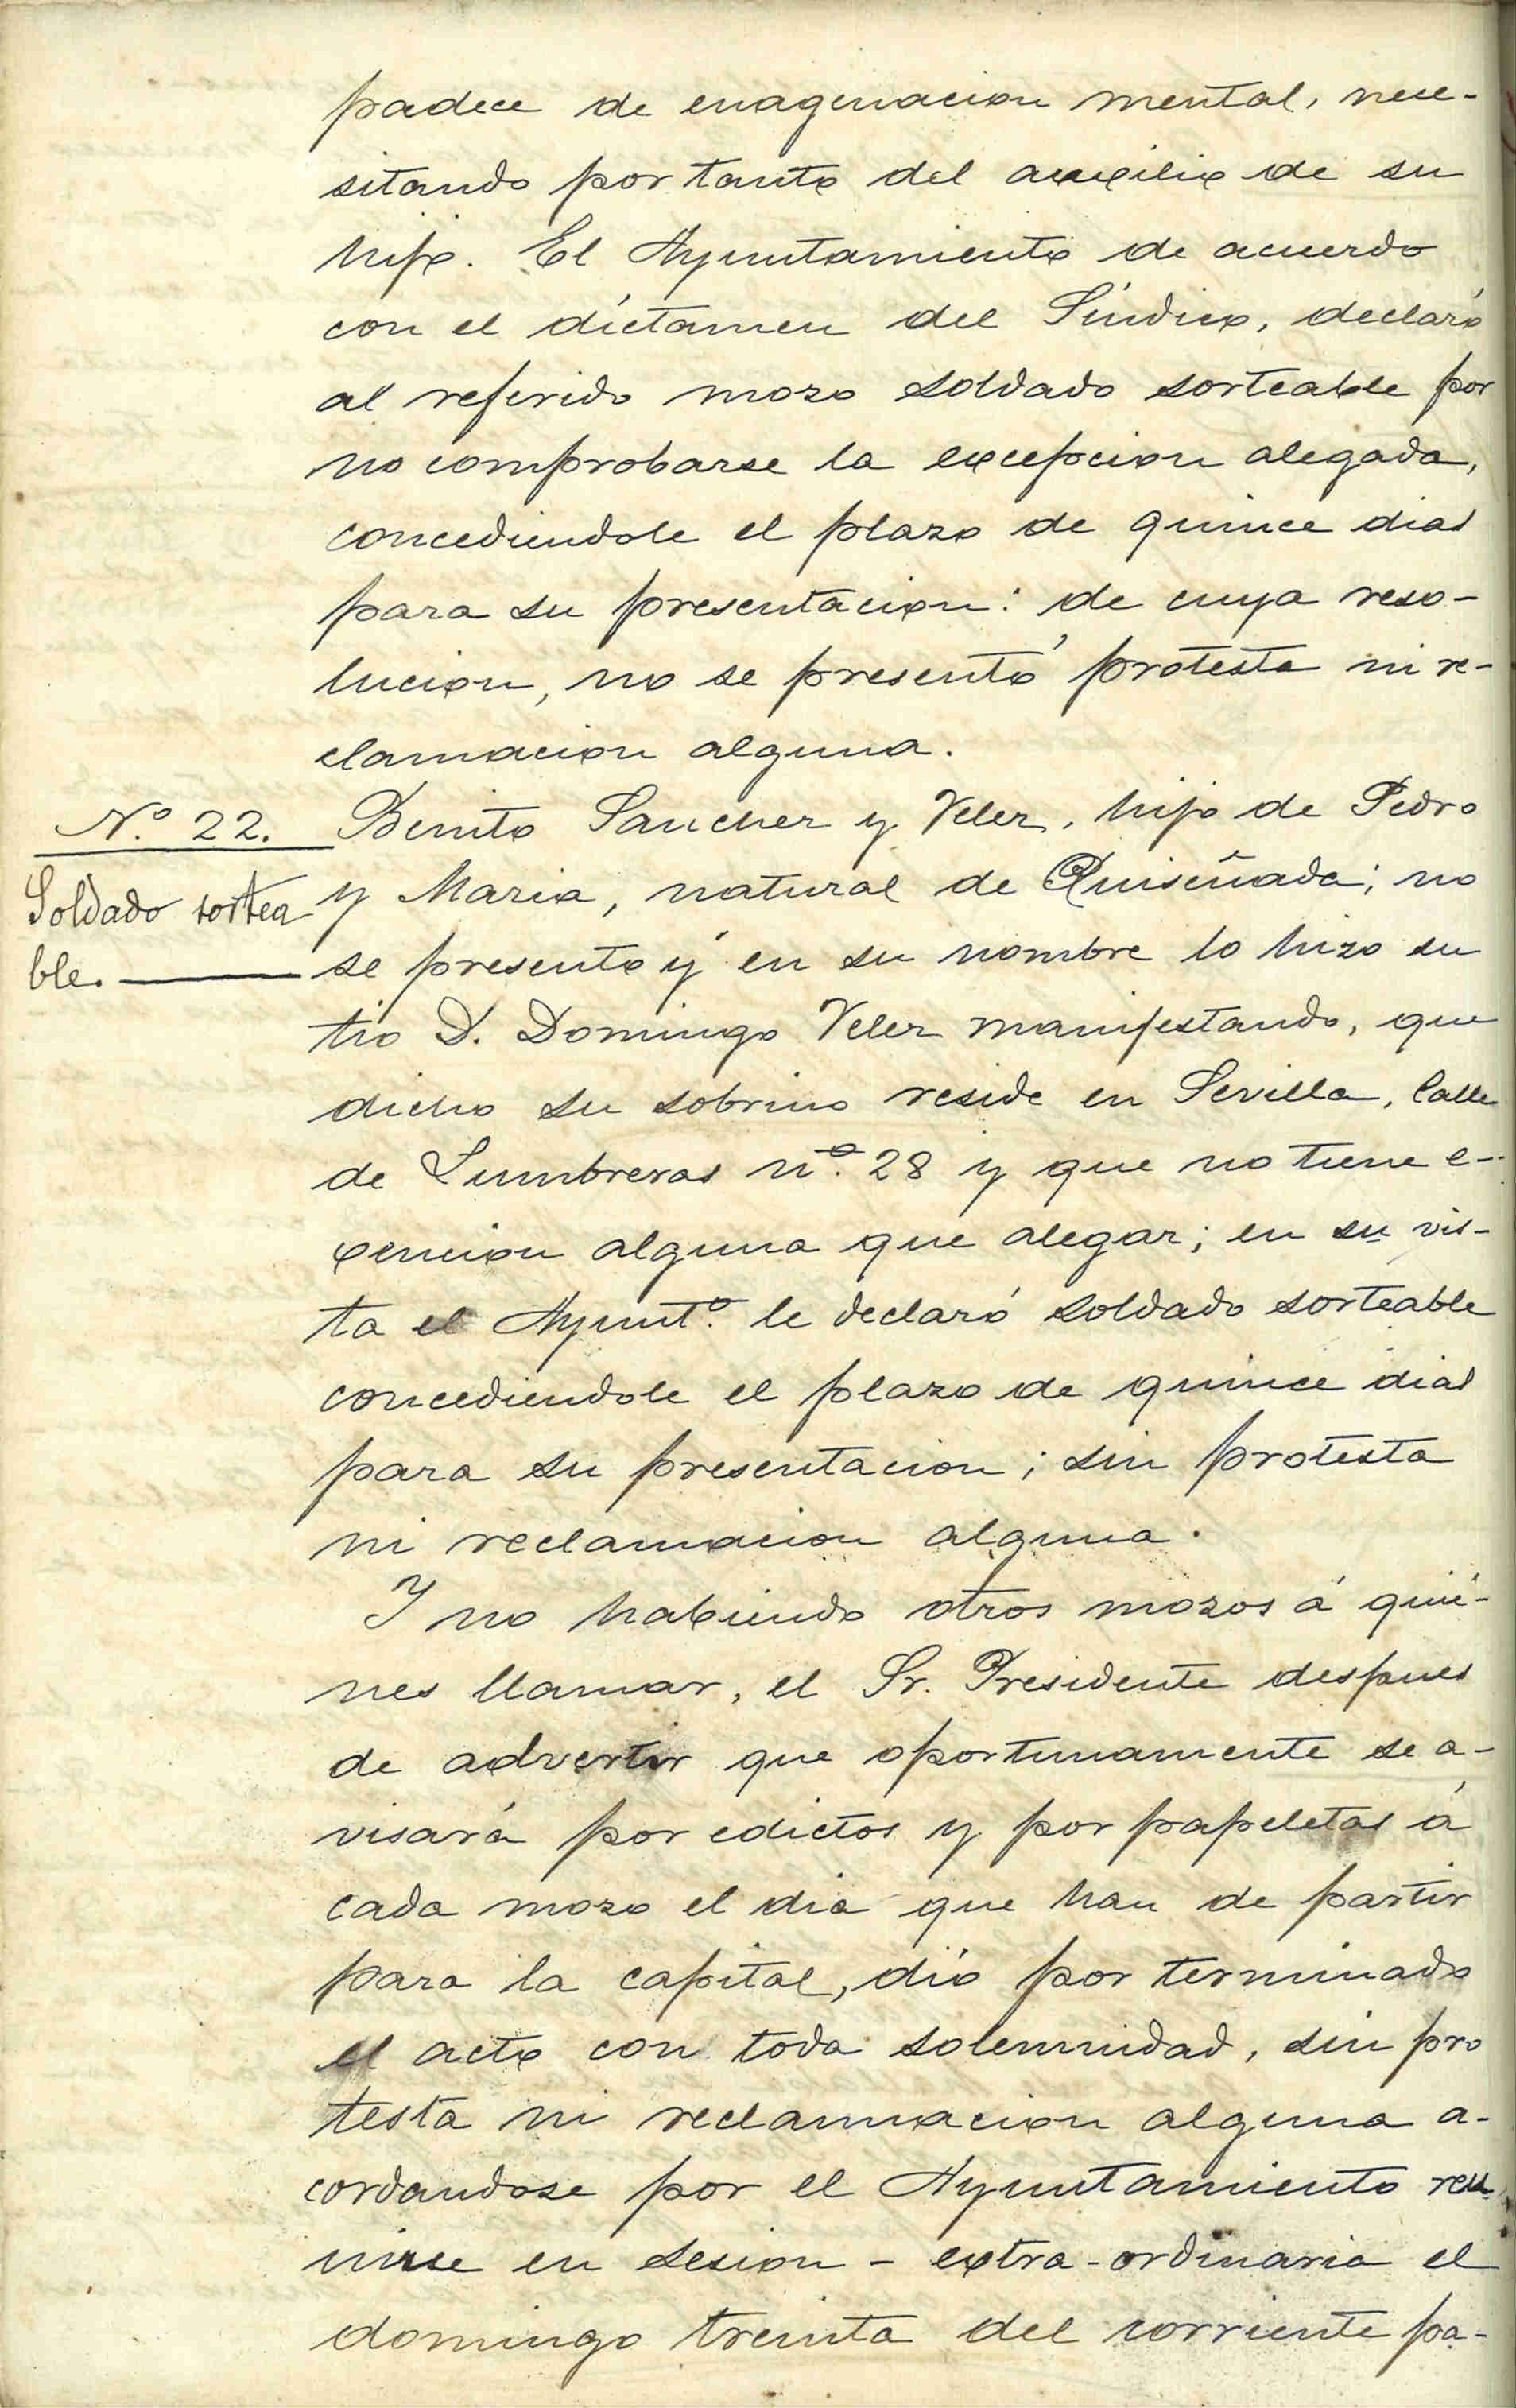 padece de enagenacion mental, nece-
sitando por tanto del auxilio de su
hijo. El Ayuntamiento de acuerdo
con el díctamen del Síndico, declaró
al referido mozo soldado sorteable por
no comprobarse la excepcion alegada,
concediendole el plazo de quince dias
para su presentacion: de cuya reso-
lucion, no se presentó protesta ni re-
clamacion alguna.
Nº 22. Benito Sanchez y Velez, hijo de Pedro
Soldado sortea y Maria, natural de Quiseñada; no
ble. se presento y en su nombre lo hizo su
tio D. Domingo Velez manifestando, que
dicho su sobrino reside en Sevilla, Calle
de Lumbreras nº. 28 y que no tiene e-
xencion alguna que alegar; en su vis-
ta el Ayuntº. le declaró soldado sorteable
concediendole el plazo de quince dias
para su presentacion; sin protesta
ni reclamacion alguna.
Y no habiendo otros mozos á quié-
nes llamar, el Sr. Presidente despues
de advertir que oportunamente se a-
visará por edictos y por papeletas á
cada mozo el dia que han de partir
para la capital, dió por terminado
el acto con toda solemnidad, sin pro
testa ni reclamacion alguna a-
cordandose por el Ayuntamiento reu-
nirse en sesion - extra-ordinaria el
domingo treinta del corriente pa-